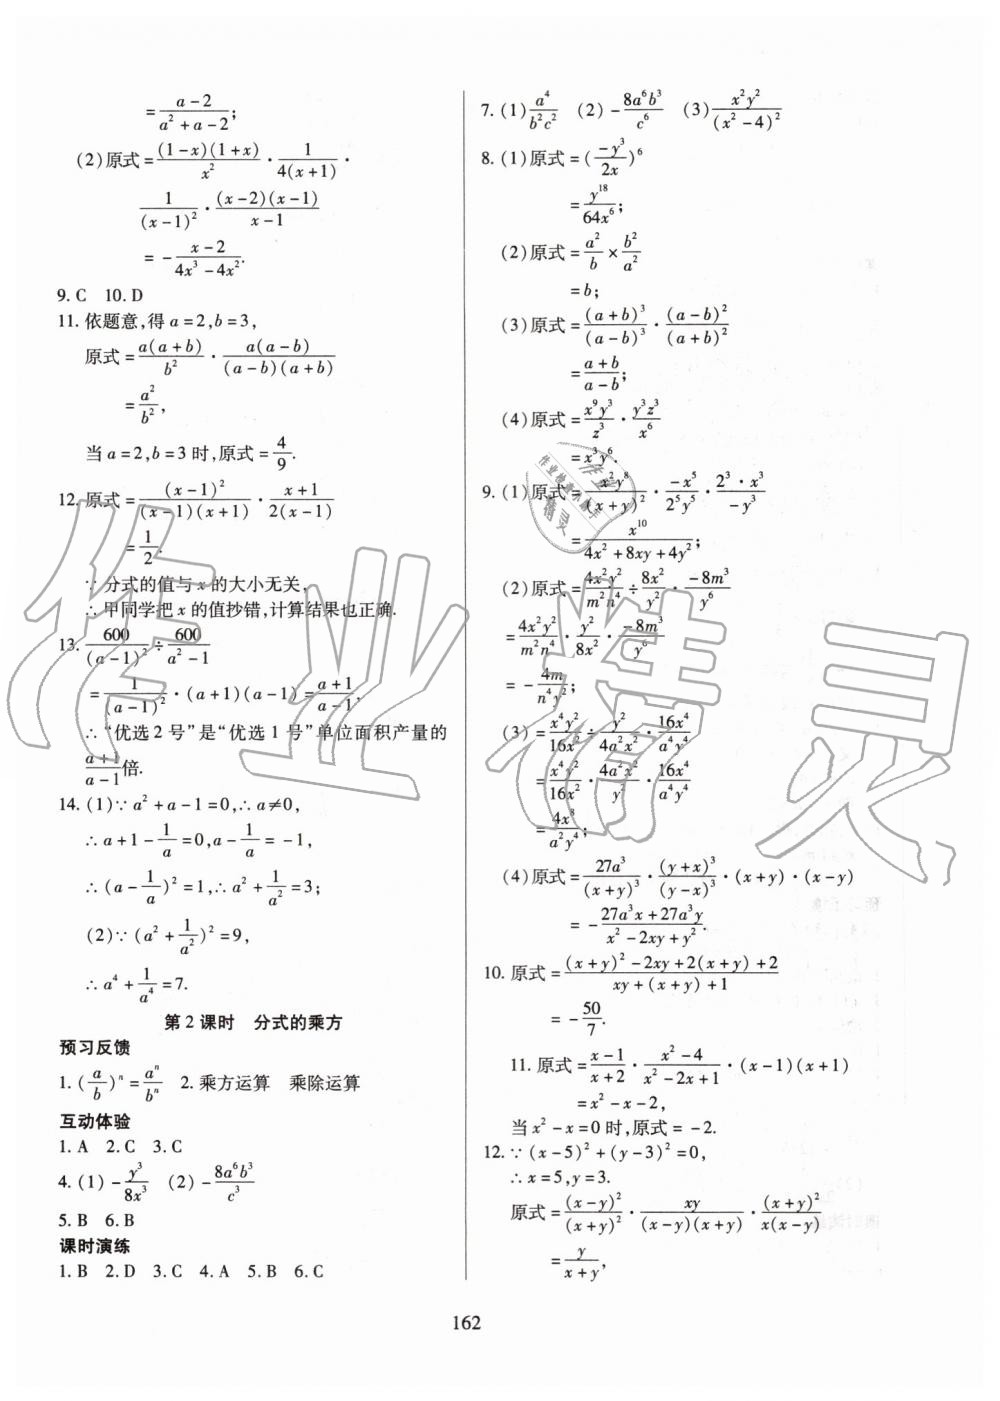 = \frac{a-2}{a^2+a-2};
(2)原式=\frac{(1-x)(1+x)}{x^2}·\frac{1}{4(x+1)}·
\frac{1}{(x-1)^2}·\frac{(x-2)(x-1)}{x-1}
= -\frac{x-2}{4x^3-4x^2}.
9. C 10. D
11. 依题意,得 a=2,b=3,
原式=\frac{a(a+b)}{b^2}·\frac{a(a-b)}{(a-b)(a+b)}
=\frac{a^2}{b^2},
当 a=2,b=3 时,原式=\frac{4}{9}.
12. 原式=\frac{(x-1)^2}{(x-1)(x+1)}·\frac{x+1}{2(x-1)}
=\frac{1}{2}.
∵ 分式的值与 x 的大小无关.
∴ 甲同学把 x 的值抄错,计算结果也正确.
13. \frac{600}{(a-1)^2}÷\frac{600}{a^2-1}
=\frac{1}{(a-1)^2}·(a+1)(a-1)=\frac{a+1}{a-1},
∴ “优选 2 号”是“优选 1 号”单位面积产量的
\frac{a+1}{a-1}倍.
14. (1)∵ a^2+a-1=0,∴ a≠0,
∴ a+1-\frac{1}{a}=0,a-\frac{1}{a}=-1,
∴ (a-\frac{1}{a})^2=1,∴ a^2+\frac{1}{a^2}=3;
(2)∵ (a^2+\frac{1}{a^2})^2=9,
∴ a^4+\frac{1}{a^4}=7.
第 2 课时 分式的乘方
预习反馈
1. (\frac{a}{b})^n=\frac{a^n}{b^n} 2. 乘方运算 乘除运算
互动体验
1. A 2. C 3. C
4. (1) -\frac{y^3}{8x^3} (2) -\frac{8a^6b^3}{c^3}
5. B 6. B
课时演练
1. B 2. D 3. C 4. A 5. B 6. C
7. (1)\frac{a^4}{b^2c^2} (2) -\frac{8a^6b^3}{c^6} (3)\frac{x^2y^2}{(x^2-4)^2}
8. (1)原式=(\frac{-y^3}{2x})^6
=\frac{y^{18}}{64x^6};
(2)原式=\frac{a^2}{b}×\frac{b^2}{a^2}
=b;
(3)原式=\frac{(a+b)^3}{(a-b)^3}·\frac{(a-b)^2}{(a+b)^2}
=\frac{a+b}{a-b};
(4)原式=\frac{x^9y^3}{z^3}·\frac{y^3z^3}{x^6}
=x^3y^6.
9. (1)原式=\frac{x^2y^8}{(x+y)^2}·\frac{-x^5}{2^5y^5}·\frac{2^3·x^3}{-y^3}
=\frac{x^{10}}{4x^2+8xy+4y^2};
(2)原式=\frac{4x^2y^2}{m^2n^4}÷\frac{8x^2}{y^2}·\frac{-8m^3}{y^6}
=\frac{4x^2y^2}{m^2n^4}·\frac{y^2}{8x^2}·\frac{-8m^3}{y^6}
= -\frac{4m}{n^4y^2};
(3)=\frac{x^4y^2}{16x^2}÷\frac{y^2}{4a^2x^2}·\frac{16x^4}{a^4y^4}
=\frac{x^4y^2}{16x^2}·\frac{4a^2x^2}{y^2}·\frac{16x^4}{a^4y^4}
=\frac{4x^8}{a^2y^4};
(4)原式=\frac{27a^3}{(x+y)^3}·\frac{(y+x)^3}{(y-x)^3}·(x+y)·(x-y)
= -\frac{27a^3x+27a^3y}{x^2-2xy+y^2}.
10. 原式=\frac{(x+y)^2-2xy+2(x+y)+2}{xy+(x+y)+1}
= -\frac{50}{7}.
11. 原式=\frac{x-1}{x+2}·\frac{x^2-4}{x^2-2x+1}·(x-1)(x+1)
=x^2-x-2,
当 x^2-x=0 时,原式=-2.
12. ∵ (x-5)^2+(y-3)^2=0,
∴ x=5,y=3.
原式=\frac{(x-y)^2}{(x+y)^2}·\frac{xy}{(x-y)(x+y)}·\frac{(x+y)^2}{x(x-y)}
=\frac{y}{x+y},
162
作业精灵